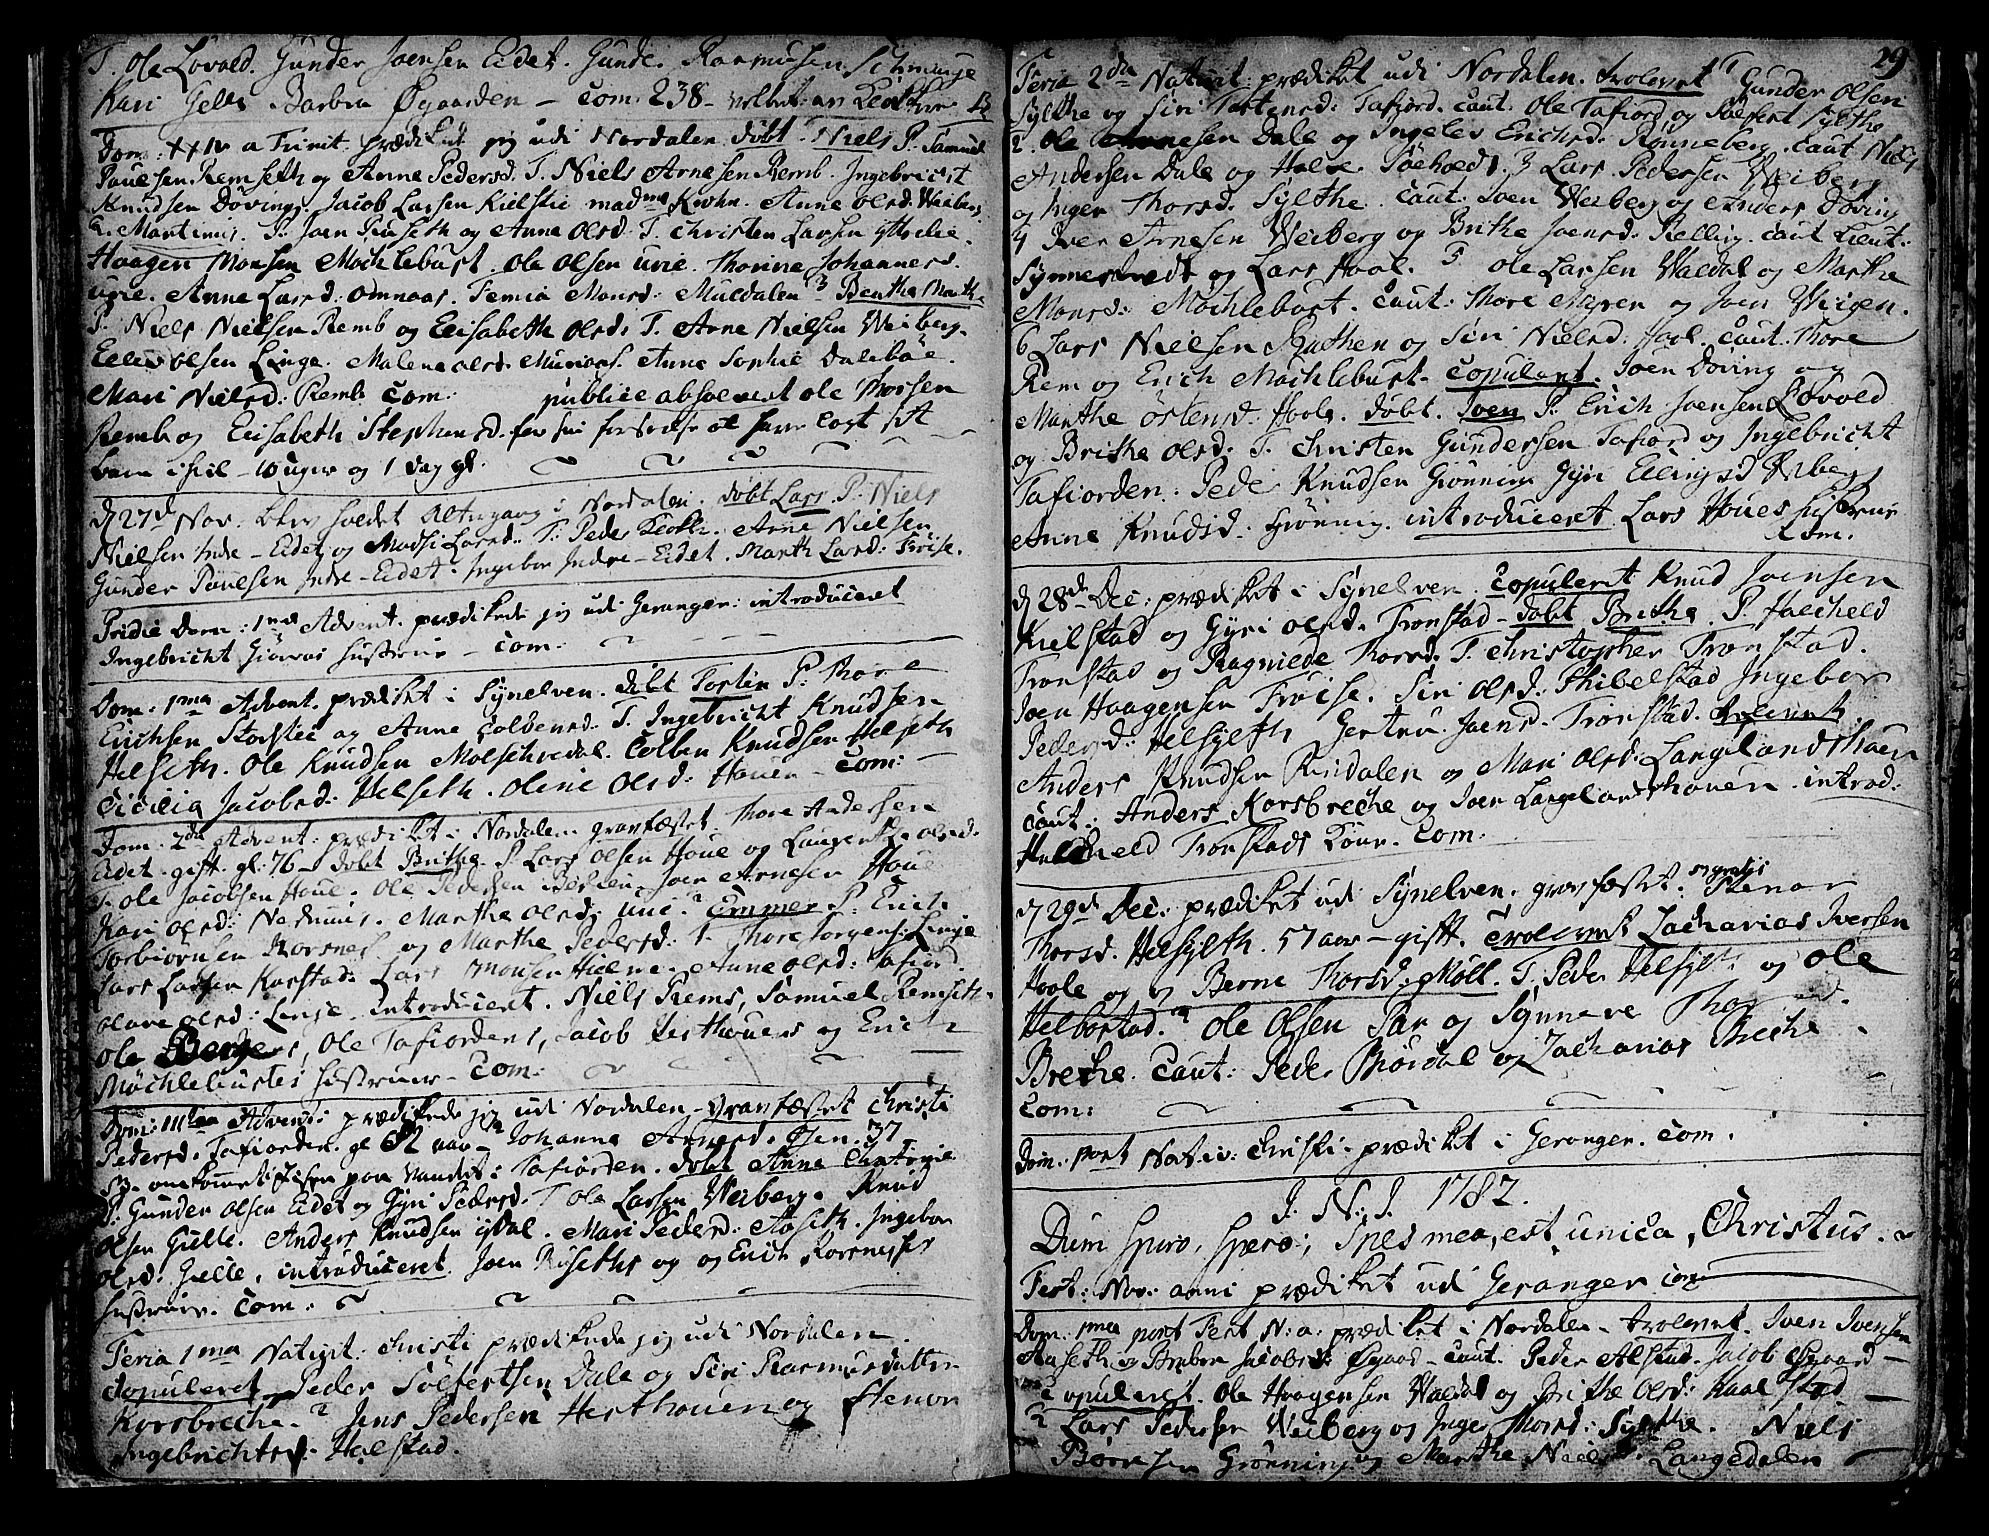 T. Ole Løvold. Gunder Joensen Eidet. Gunde. Rasmusen
Kari Gelle Barbra Øgaarden – Com. 238 –
Dom: XXIV a Trinit. prædiket jeg udi Nordalen døbt Niels P. Samuel
Pouelsen Remseth og Anne Pedersd. T. Niels Arnesen Remb. Ingebricht
Knudsen Døving. Jacob Larsen Kielstie madme Krohn. Anne Olsd. Weiberg
2. Martinus. P. Joen Rinseth og Anne Olsd. T. Christen Larsen
Haagen Monsen Mochlebust. Ole Olsen Urie. Thorine Johannesd.
Urie. Anne Larsd: Omnaas. Femia Monsd: Muldalen 3 Benthe Marthe
P. Niels Nielsen Remb og Elisabeth Olsd: T. Arne Nielsen Weiberg.
Olsen Linge. Malene Olsd. Anne Sophie Dalebøe.
Mari Nielsd: Remb Com. publice absolveret Ole Thorsen
Remb og Elisabeth Stephensd. for sin forseelse at have lagt sit
barn ihiel – 10 uger og 1 dag gl.
d 27d Nov. blev holdet Altergang i Nordalen. døbt Lars P. Niels
Nielsen Indre-Eidet og Madsi Larsd. T: Peder Arne Nielsen
Gunder Pouelsen Indre-Eidet. Ingebor Indre-Eidet. Marth Larsd: Frøise.
Pridie Dom: 1mæ Advent. prædikede jeg udi Geranger: introduceret
Ingebricht Hustrue – Com.
Dom: 1ma Advent. prædiket i Synelven. døbt Tostin P: Thore
Erichsen og Anne Colbensd: T. Ingebricht Knudsen
Helseth. Ole Knudsen Molschredal. Colben Knudsen Helseth
Cicilia Jacobsd: Helseth. Oline Olsd: Houen – Com:
Dom: 2da Advent: prædiket i Nordalen granfæstet Thore Andersen
Eidet. gift. gl: 76 – døbt Brithe P. Lars Olsen Houe og Olsd.
T. Ole Jacobsen Houe. Ole Pedersen Joen Arnesen Houe
Kari Olsd: Marthe Olsd: Urie. 2 Emmer P. Erich
Torbiørnsen Korsnes og Marthe Pedersd: T. Thore Jorgens: Linje
Lars Larsen Karstad: Lars Monsen Hielme. Anne Olsd: Tafiord.
Olave Olsd: Linje. introduceret. Niels Rems, Samuel Remseths.
Ole Berges, Ole Tafiordens, Jacob Herthoues og Erich
Møchlebustes Hustruer – Com:
Dom: IIItia Advent: prædikede jeg udi Nordalen – Granfæstet Christi
Pedersd. Tafiorden. gl 62 aar – Johanna Arnesd. 37
paa Vandet i Tafiorden. døbt Anne
P: Gunder Olsen Eidet og Gyri Pedersd. T Ole Larsen Weiberg. Knud
Olsen Gielle. Anders Knudsen Mari Pedersd: Aaseth. Ingebor
Olsd: Gielle. introduceret. Joen Røseths og og Erich Korsnesses
Hustruer. Com.
Feria 1ma Nativit. Christi prædikede jeg udi Nordalen.
Copuleret. Peder Sølfertsen Dale og Siri Rasmusdatter
Korsbreche. 2 Jens Pedersen Herthouen og Stenor
Ingebrichtsd. Helstad.
29
Feria 2da Nativit: prædiket udi Nordalen. trolovet 1 Gunder Olsen
Sylthe og Siri Tostensd: Tafiord. Caut. Ole Tafiord og Sølfert Sylthe
2. Ole Arnesen Dale og Ingelev Erichsd. Rønneberg. Caut Niels
Andersen Dale og 3 Lars Pedersen Weiberg
og Inger Thorsd. Sylthe. Caut: Joen Weiberg og Anders Døving
4 Iver Arnesen Weiberg og Brithe Joensd: Relling. Caut Lieut:
og Lars Hool. 5 Ole Larsen Waldal og Marthe
Monsd: Mochlebust. Caut: Thore Myren og Joen Wiigen.
6 Lars Nielsen Ruthen og Siri Nielsd: Hool. Caut. Thore
Rem og Erich Mochlebust. Copuleret. Joen Døving og
Marthe Østensd: Hoole. døbt. Joen P: Erich Joensen Løvold
og Brithe Olsd. T. Christen Gundersen Tafiord og Ingebricht
Tafiorden. Peder Knudsen Grønning Gyri Ellingsd
Anne Knudsd. Grønning. introduceret Lars Houes Hustrue
Com.
d 28d Dec: prædiket i Synelven. Copuleret Knud Joensen
Kielstad og Gyri Olsd. Tronstad – døbt Brithe. P. Halcheld
Tronstad og Ragnilde Thorsd. T. Christopher Tronstad.
Joen Haagensen Frøise. Siri Olsd: Ingebor
Pedersd: Helsylth Gertru Joensd. Tronstad. trolovet
Anders Knudsen Rindalen og Mari Olsd: Langelandshoen
Caut: Anders Korsbreche og Joen Langelandshouen. introd:
Halcheld Tronstads Kone. Com.
d 29d Dec. prædiket udi Synelven. gravfæstet. Stenor
Thorsd. Helsylth. 57 aar – gift. Trolovet Zacharias Iversen
Hoole og Berne Thorsd. Møll. T. Peder Helsylt og Ole
Helbostad. 2 Ole Olsen og Synneve
Breche. Caut: Peder og Zacharias Breche
Com:
Dom: post Nativ: Christi prædiket i Geranger. Com.
J. N. J. 1782.
Dum spiro, spero; spes mea, est unica, Christus.
Fest: Nov: anni prædiket udi Geranger Com
Dom: 1ma post Fest N: a: prædiket i Nordalen – trolovet. Iven Ivensen
Aaseth og Barbra Jacobsd: Øgaard – Caut. Peder Alstad. Jacob Øgaard –
Copuleret. Ole Haagensen Waldal og Brithe Olsd:
2 Lars Pedersen Weiberg og Inger Thorsd: Sylthe. Niels
Grønning og Marthe Langedalen